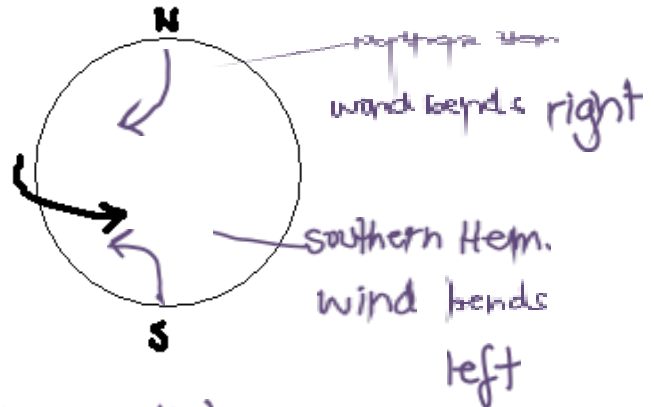 N
northern Hem
wind bends right
southern Hem.
wind bends
left
S